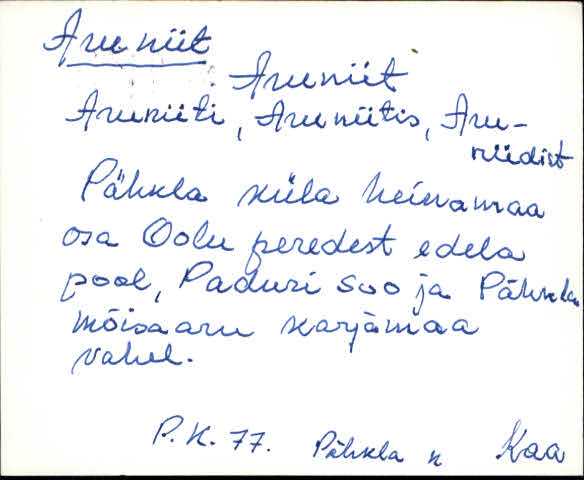 Aruniit
Aruniit
Aruniiti, Aruniitis, Aru-
niidist
Pähkla küla heinamaa
osa Oolu peredest edela
pool, Paduri soo ja Pähkla
mõisaaru karjamaa
vahel.
P.K. 77. Pähkla k Kaa